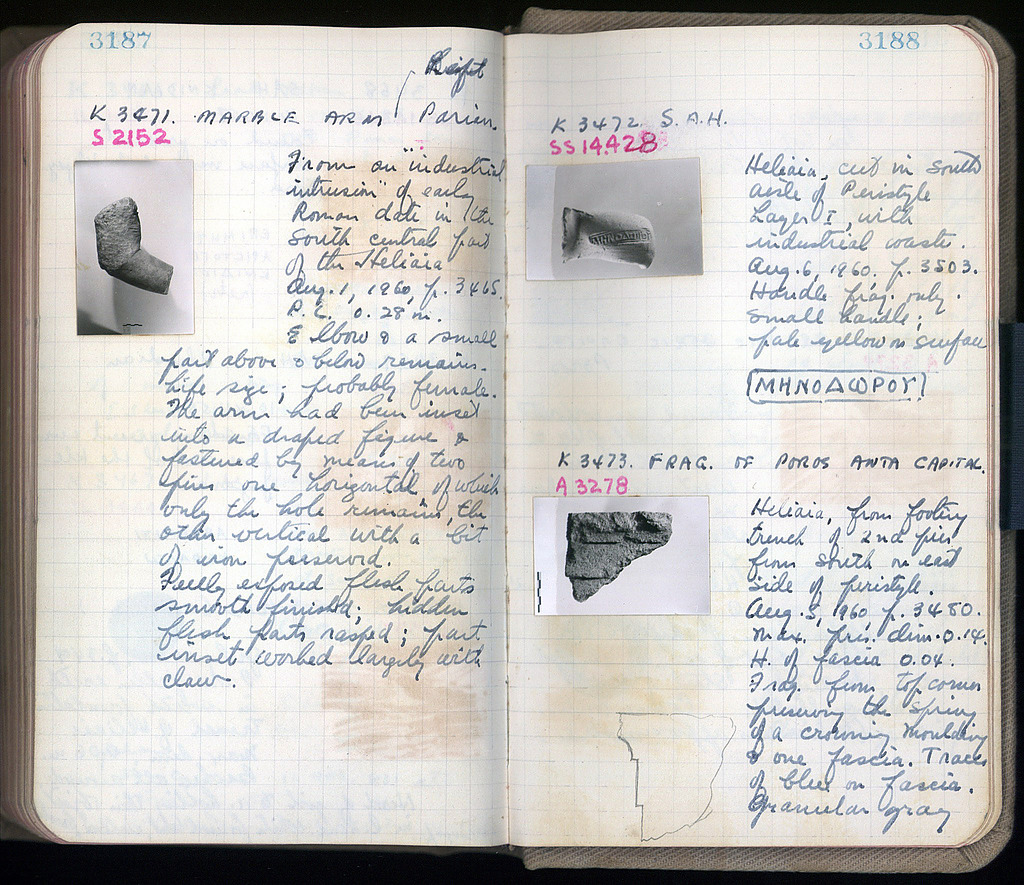 3187
Right
K 3471. MARBLE ARM Parian.
S 2152
From an "industrial
intrusion" of early
Roman date in the
south central part
of the Heliaia
Aug. 1, 1960, p. 3465.
P.L. 0.28 m.
Elbow & a small
part above & below remains.
Life size; probably female.
The arm had been inset
into a draped figure &
fastened by means of two
pins one horizontal of which
only the hole remains, the
other vertical with a bit
of iron preserved.
Fully exposed flesh parts
smooth finished; hidden
flesh parts rasped; part
inset worked largely with
claw.
3188
K 3472. S.A.H.
SS 14.428
Heliaia, cut in south
aisle of Peristyle
Layer I, with
industrial waste.
Aug. 6, 1960, p. 3503.
Handle frag. only.
Small handle;
pale yellow on surface
ΜΗΝΟΔΩΡΟΥ
K 3473. FRAG. OF POROS ANTA CAPITAL.
A 3278
Heliaia, from footing
trench of 2nd pier
from south on east
side of peristyle.
Aug. 3, 1960, p. 3480.
Max. pres. dim. 0.14.
H. of fascia 0.04.
Frag. from top corner
preserving the spring
of a crowning moulding
& one fascia. Traces
of blue on fascia.
Granular gray